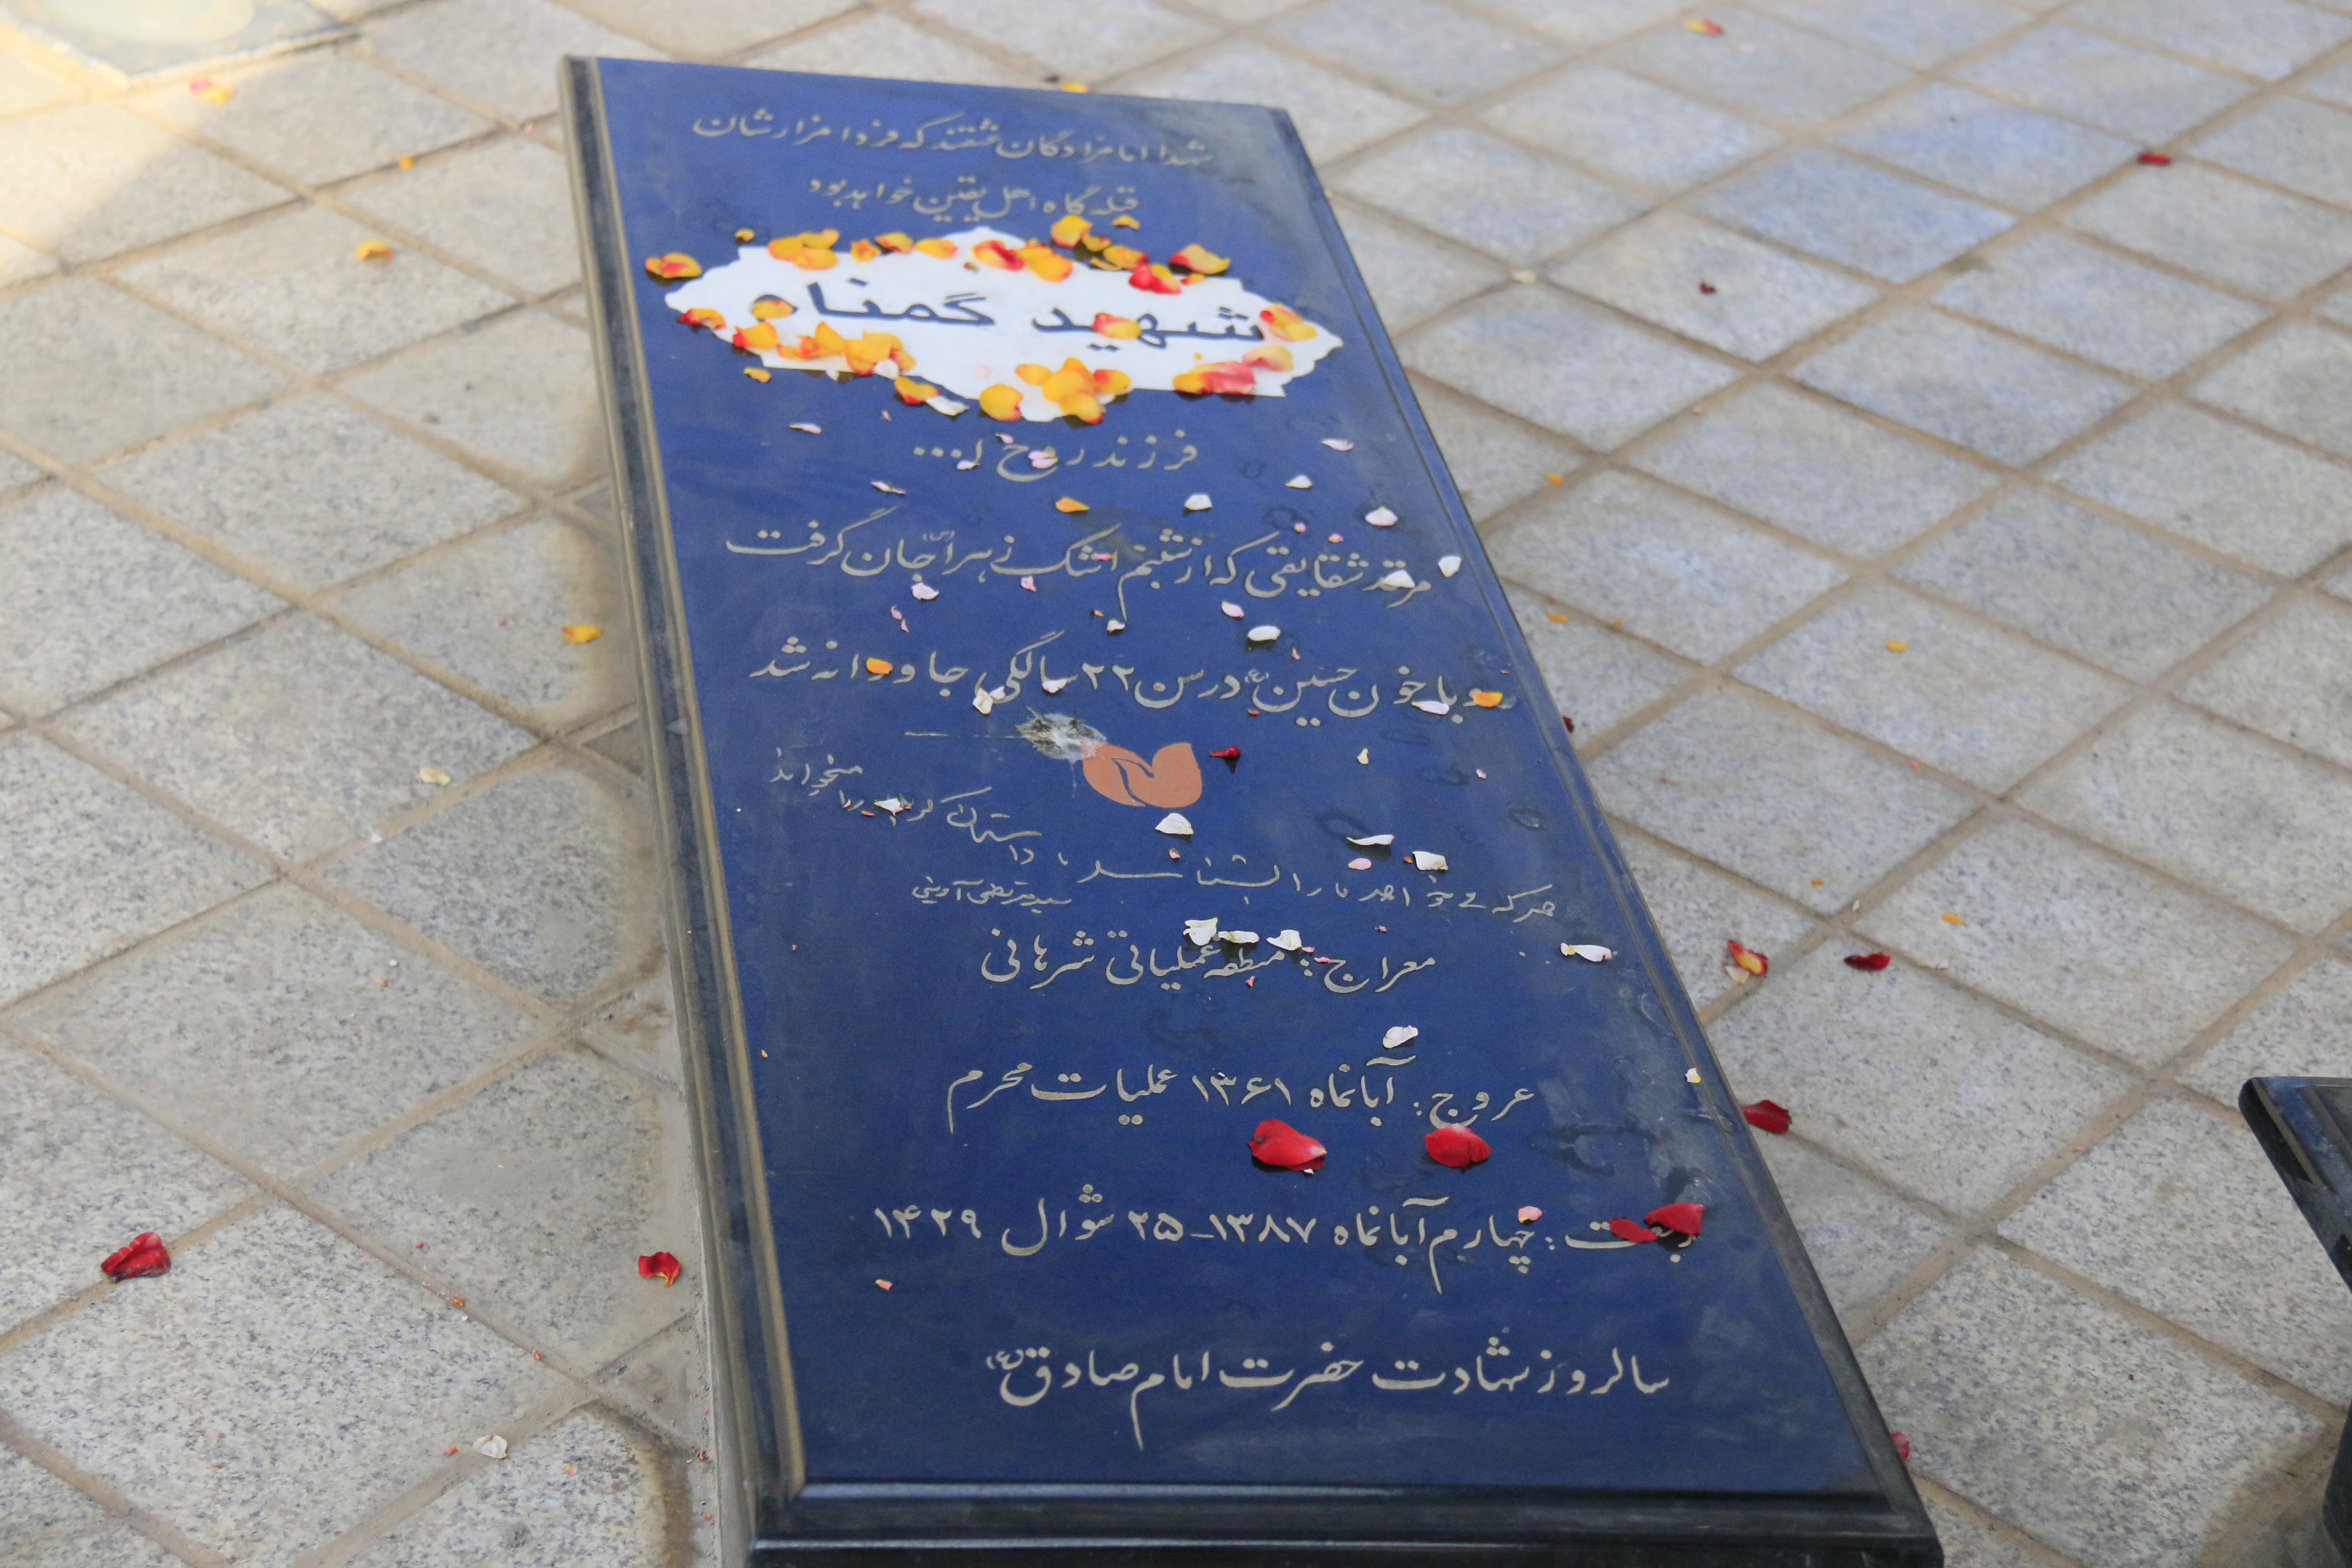 شهدا امامزادگان عشقند که فردا مزارشان
قبله گاه اهل یقین خواهد بود
شهید گمنام
فرزند روح ا...
مرقد شقایقی که از شبنم اشک زهرا(س) جان گرفت
و با خون حسین(ع) در سن ۲۲ سالگی جاودانه شد
هر که می خواهد ما را بشناسد، داستان کربلا را بخواند
سیدمرتضی آوینی
معراج: منطقه عملیاتی شرهانی
عروج: آبانماه ۱۳۶۱ عملیات محرم
رجعت: چهارم آبانماه ۱۳۸۷-۲۵ شوال ۱۴۲۹
سالروز شهادت حضرت امام صادق(ع)